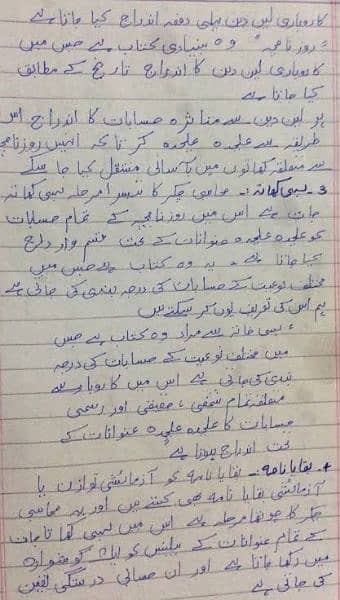 کاروباری لین دین پہلی دفعہ اندراج کیا جاتا ہے
"روزنامچہ" وہ بنیادی کتاب ہے جس میں
کاروباری لین دین کا اندراج تاریخ کے مطابق
کیا جاتا ہے
ہر لین دین سے متاثرہ حسابات کا اندراج اس
طریقہ سے علیحدہ علیحدہ کر تاکہ انہیں روزنامچہ
سے متعلقہ کھاتوں میں بآسانی منتقل کیا جا سکے
3- بہی کھاتہ:۔ محاسبی چکر کا تیسرا مرحلہ بہی کھاتہ
جات ہے اس میں روزنامچہ کے تمام حسابات
کو علیحدہ علیحدہ عنوانات کے تحت قسم وار درج
کیا جاتا ہے۔ یہ وہ کتاب ہے جس میں
مختلف نوعیت کے حسابات کی درجہ بندی کی جاتی ہے
ہم اس کی تعریف یوں کر سکتے ہیں
، بہی کھاتہ سے مراد وہ کتاب ہے جس
میں مختلف نوعیت کے حسابات کی درجہ
بندی کی جاتی ہے اس میں کاروبار سے
متعلقہ تمام شخصی، حقیقی اور رسمی
حسابات کا علیحدہ علیحدہ عنوانات کے
تحت اندراج ہوتا ہے
بقایا نامہ:۔ بقایا نامہ کو آزمائشی توازن یا
آزمائشی بقایا نامہ بھی کہتے ہیں اور یہ محاسبی
چکر کا چوتھا مرحلہ ہے اس میں بہی کھاتا جات
کے تمام عنوانات کے بیلنس کو ایک گوشوارہ
میں رکھا جاتا ہے اور ان حسابی درستگی یقین
کی جاتی ہے